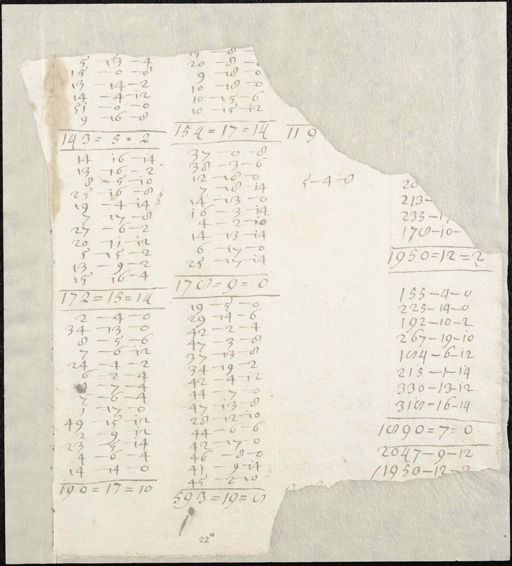 5-13-4
15-0-8
13-14-2
14-4-12
51-0-0
9-16-8
143=5=2
14-16-14
13-16-2
8-5-10
25-16-8
19-4-14
7-17-8
27-6-2
20-11-12
5-15-2
13-9-2
15-16-4
172=15=14
2-4-0
34-13-0
8-5-6
7-6-12
24-4-2
6-2-4
7-4
7-6-4
1-17-0
49-15-12
2-9-12
23-5-14
4-6-4
14-14-0
190=17=10
20-8-0
9-18-0
10-18-0
10-15-6
10-15-12
154=17=14
37-0-8
38-3-6
12-18-0
7-18-14
14-13-0
16-3-14
4-2-10
14-13-14
6-17-0
25-17-14
178=9=0
19-5-0
29-14-6
42-2-4
47-3-8
37-13-8
34-19-2
42-4-12
44-7-0
47-13-8
28-12-10
44-6-6
42-17-0
46-8-0
41-9-14
45-2-10
593=19=0
119
5-4-8
20
213-
235-1
178-10-
1950=12=2
155-4-0
225-14-0
192-10-2
267-19-10
184-6-12
215-1-14
330-13-12
318-16-14
1890=7=0
2047-9-12
1950-12-2
22a